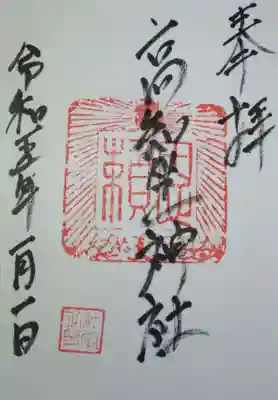 奉拝
高知坐神社
令和五年一月一日